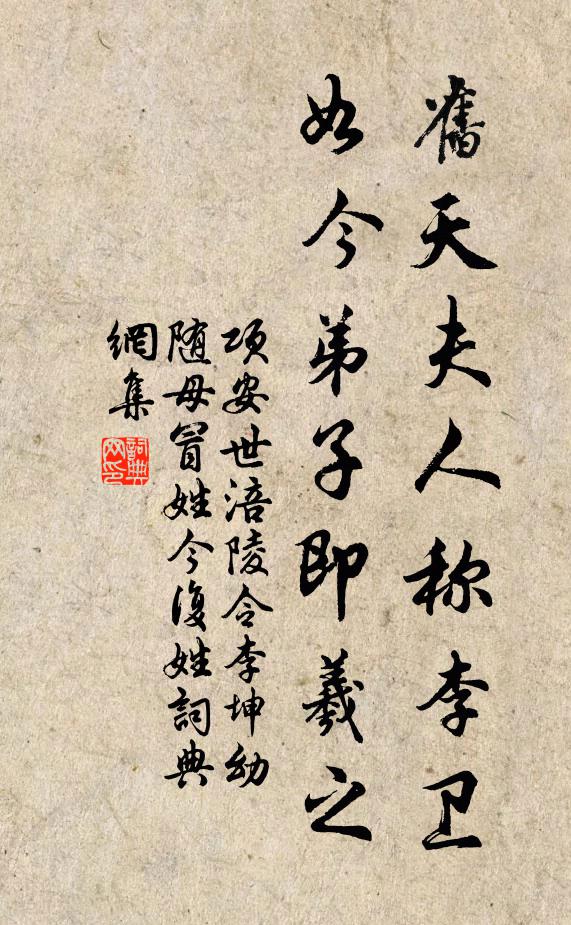 舊天夫人称李卫
如今弟子即羲之
项安世涪陵令李坤幼
随母冒姓今復姓詞典
網集
詞典
网印